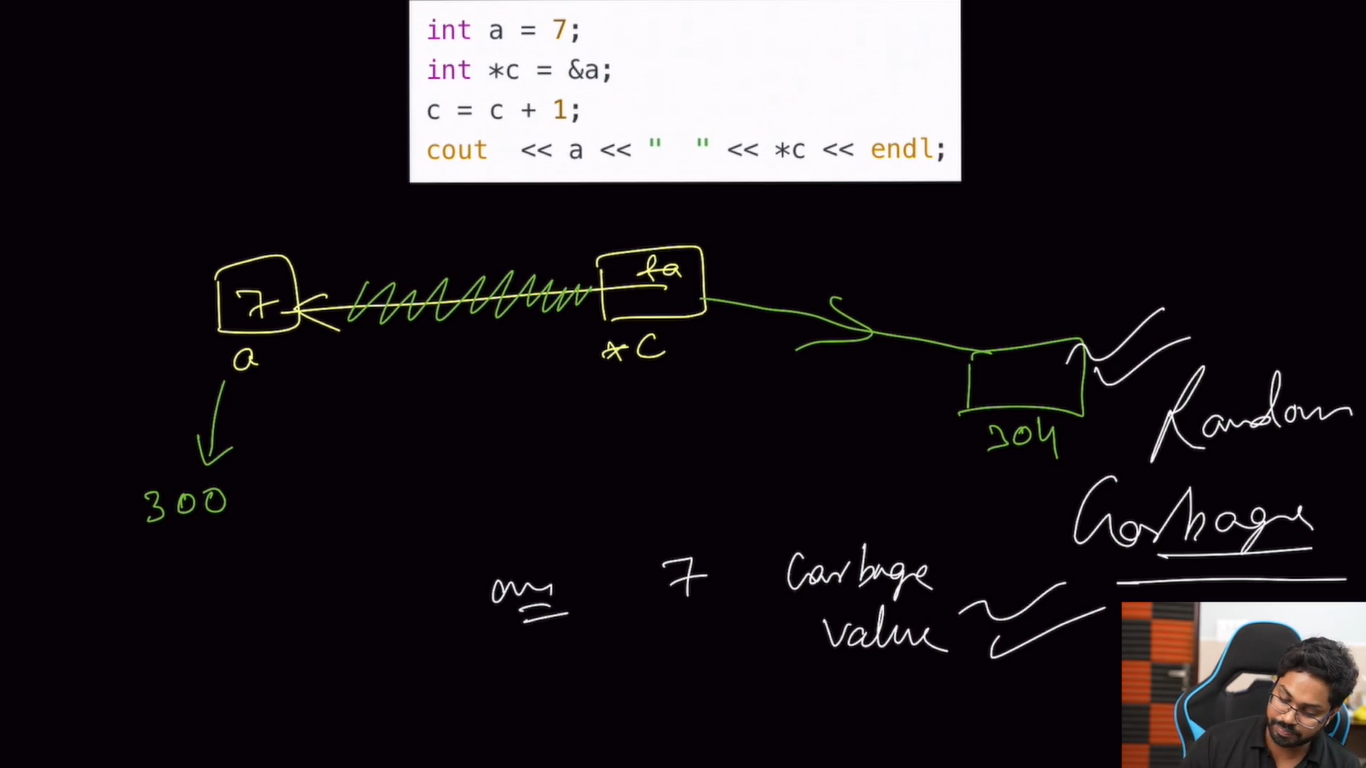 int a = 7;
int *c = &a;
c = c + 1;
cout  << a << "  " << *c << endl;
7
&a
a
*C
300
304
Random
Garbage
ans
7
Garbage
value